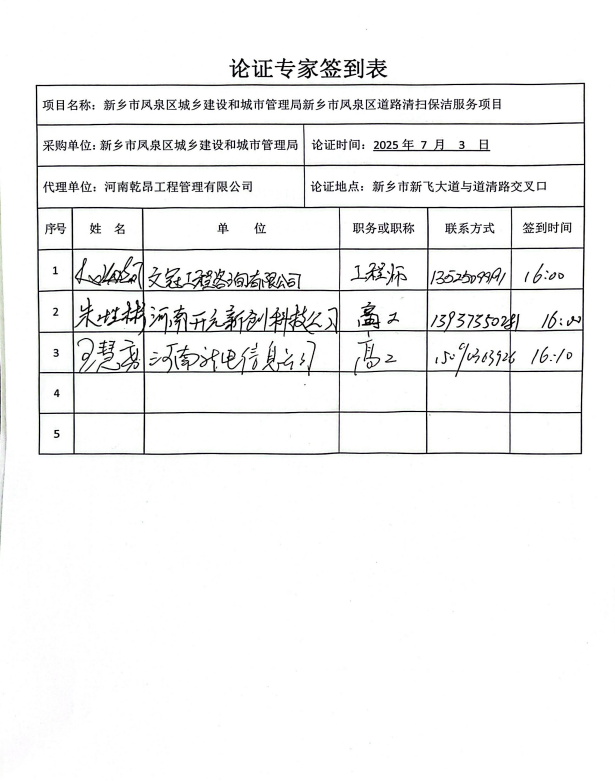 论证专家签到表
项目名称：新乡市凤泉区城乡建设和城市管理局新乡市凤泉区道路清扫保洁服务项目
采购单位：新乡市凤泉区城乡建设和城市管理局 论证时间：2025年 7 月 3 日
代理单位：河南乾昂工程管理有限公司 论证地点：新乡市新飞大道与道清路交叉口
序号 姓 名 单 位 职务或职称 联系方式 签到时间
1 文冠工程咨询有限公司 工程师 16:00
2 河南开元新创科技公司 高工 16:00
3 王慧 河南 电信息公司 高工 16:10
4
5